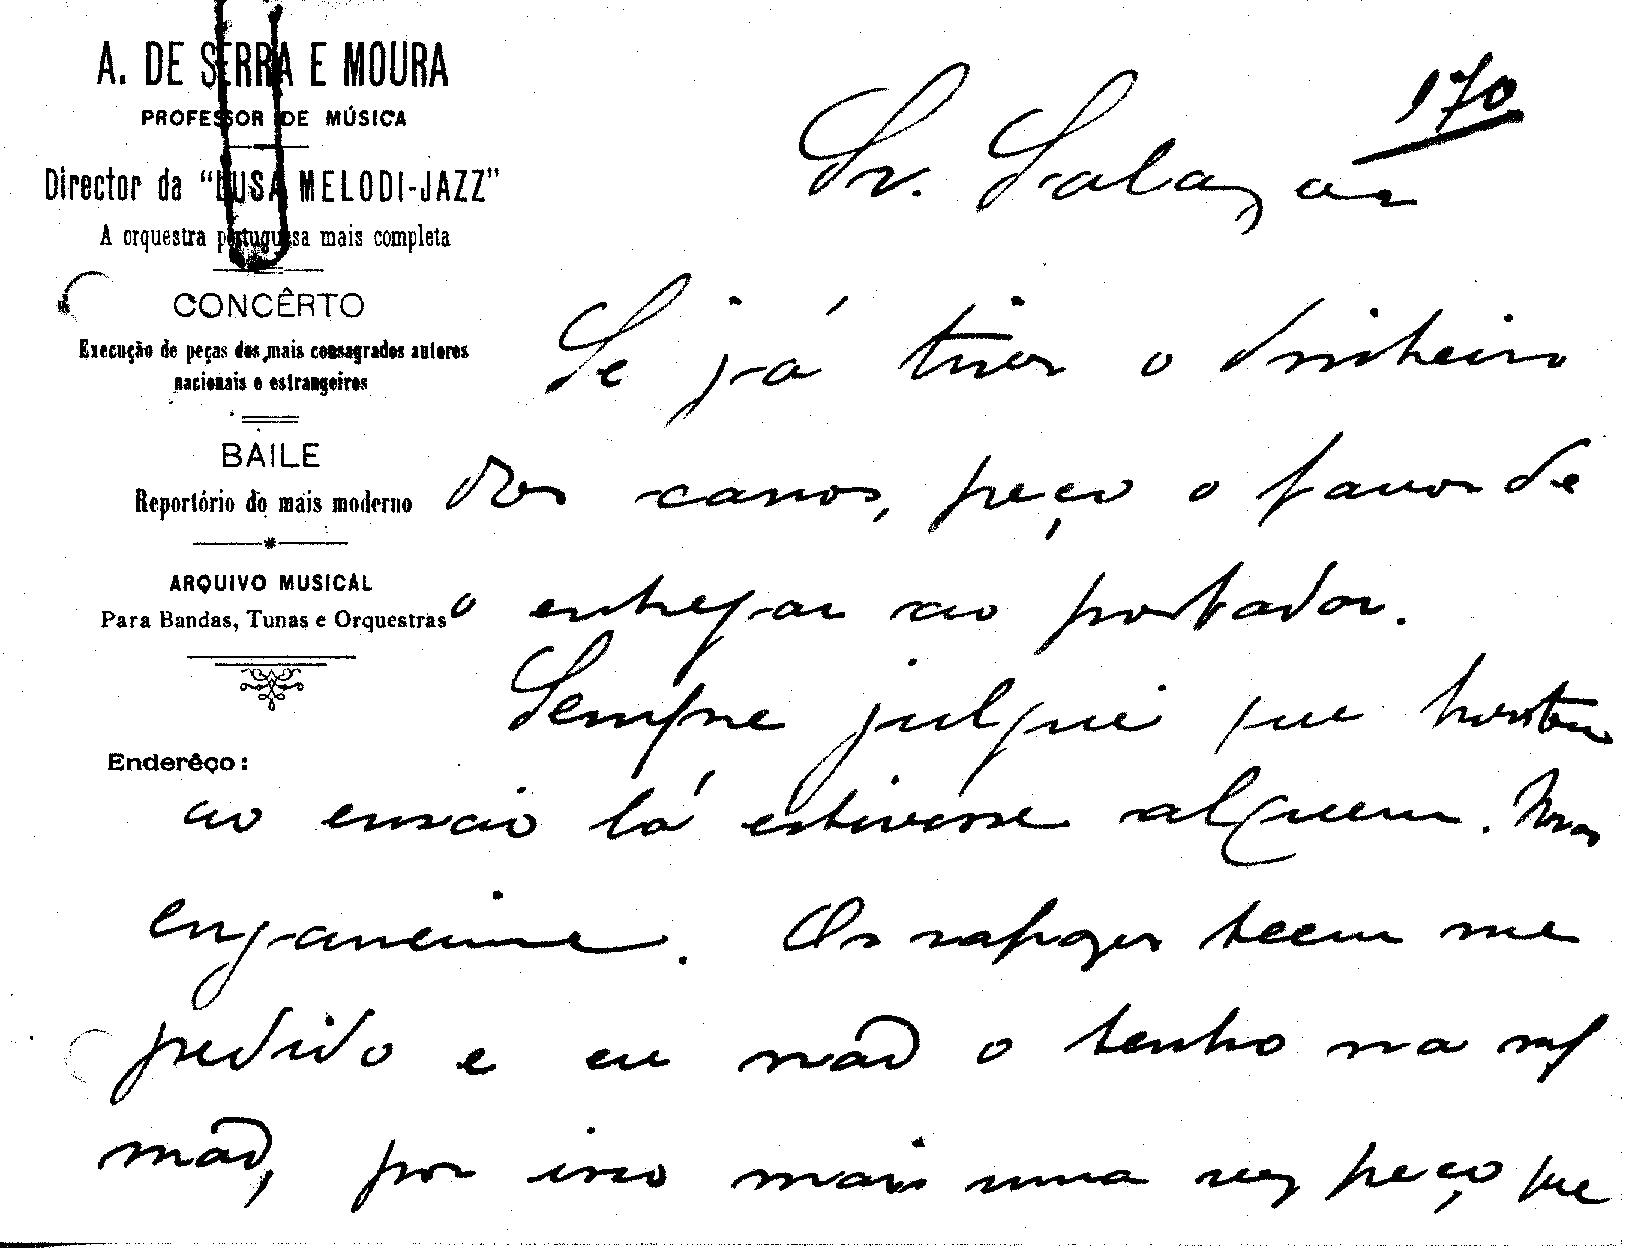 A. DE SERRA E MOURA
PROFESSOR DE MÚSICA
Director da "LUSA MELODI-JAZZ"
A orquestra portuguesa mais completa
CONCÊRTO
Execução de peças dos mais consagrados autores
nacionais e estrangeiros
BAILE
Reportório do mais moderno
ARQUIVO MUSICAL
Para Bandas, Tunas e Orquestras
Enderêço:
170
Sr. Salazar
Se já tiver o dinheiro
dos carros, peço o favor de
o entregar ao portador.
Sempre julguei que
ao ensaio lá estivesse alguem. Mas
enganeime. Os rapazes teem me
pedido e eu não o tenho na mª
mão, por isso mais uma vez peço que